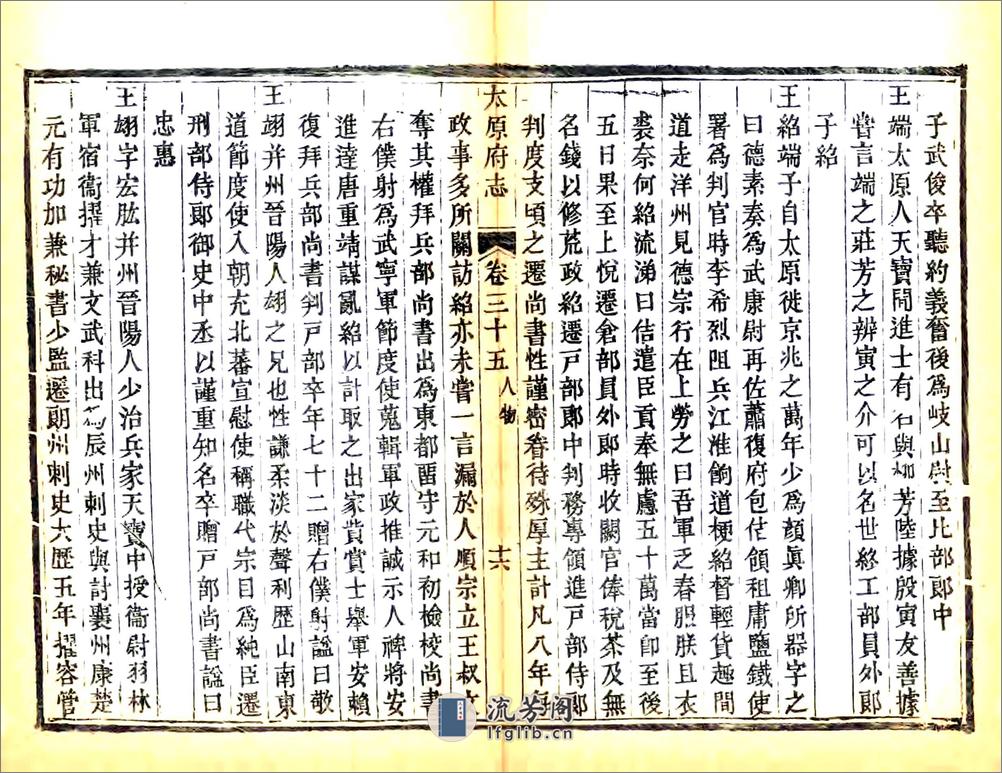 子武俊卒聽約義奮後爲岐山尉至比部郎中
王端太原人天寶間進士有名與柳芳陸據殷寅友善據
嘗言端之莊芳之辨寅之介可以名世終工部員外郎
子紹
王紹端子自太原徙京兆之萬年少爲顏眞卿所器字之
曰德素奏爲武康尉再佐蕭復府包佶領租庸鹽鐵使
署爲判官時李希烈阻兵江淮餉道梗紹督輕貨趣間
道走洋州見德宗行在上勞之曰吾軍乏春服朕且衣
裘奈何紹流涕曰佶遣臣貢奉無慮五十萬當卽至後
五日果至上悅遷倉部員外郎時收關官俸稅茶及無
名錢以修荒政紹遷戸部郎中判務專領進戸部侍郎
判度支頃之遷尚書性謹密眷待殊厚主計凡八年每
太原府志
卷三十五
人物
十六
政事多所關訪紹亦未嘗一言漏於人順宗立王叔文
奪其權拜兵部尚書出爲東都留守元和初檢校尚書
右僕射爲武寧軍節度使蒐輯軍政推誠示人裨將安
進達唐重靖謀亂紹以計取之出家貲賞士舉軍安賴
復拜兵部尚書判戸部卒年七十二贈右僕射諡曰敬
王翃并州晉陽人翃之兄也性謙柔淡於聲利歷山南東
道節度使入朝充北蕃宣慰使稱職代宗目爲純臣遷
刑部侍郎御史中丞以謹重知名卒贈戸部尚書諡曰
忠惠
王翃字宏肱并州晉陽人少治兵家天寶中授衞尉羽林
軍宿衞擢才兼文武科出爲辰州刺史與討襄州康楚
元有功加兼秘書少監遷朗州刺史大歷五年擢容管
流芳閣
lfglib.cn